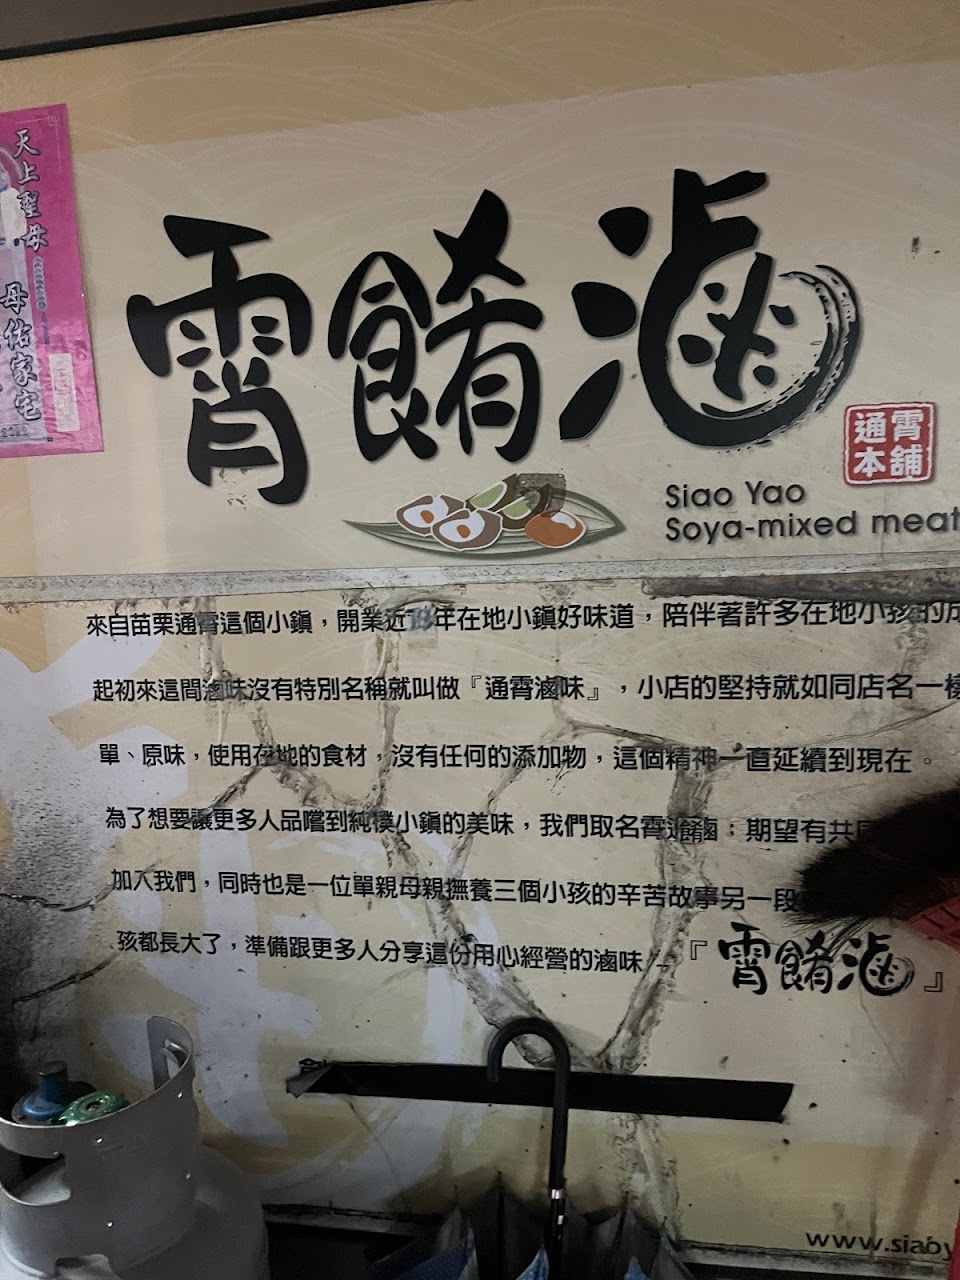 天上聖母
母佑家宅
2022
霄餚滷
通霄
本舖
Siao Yao
Soya-mixed meat
來自苗栗通霄這個小鎮，開業近年在地小鎮好味道，陪伴著許多在地小孩的成
起初來這間滷味沒有特別名稱就叫做『通霄滷味』，小店的堅持就如同店名一樣
單、原味，使用在地的食材，沒有任何的添加物，這個精神一直延續到現在。
為了想要讓更多人品嚐到純樸小鎮的美味，我們取名霄餚滷；期望有共
加入我們，同時也是一位單親母親撫養三個小孩的辛苦故事另一段
孩都長大了，準備跟更多人分享這份用心經營的滷味—『霄餚滷』
www.siaoy